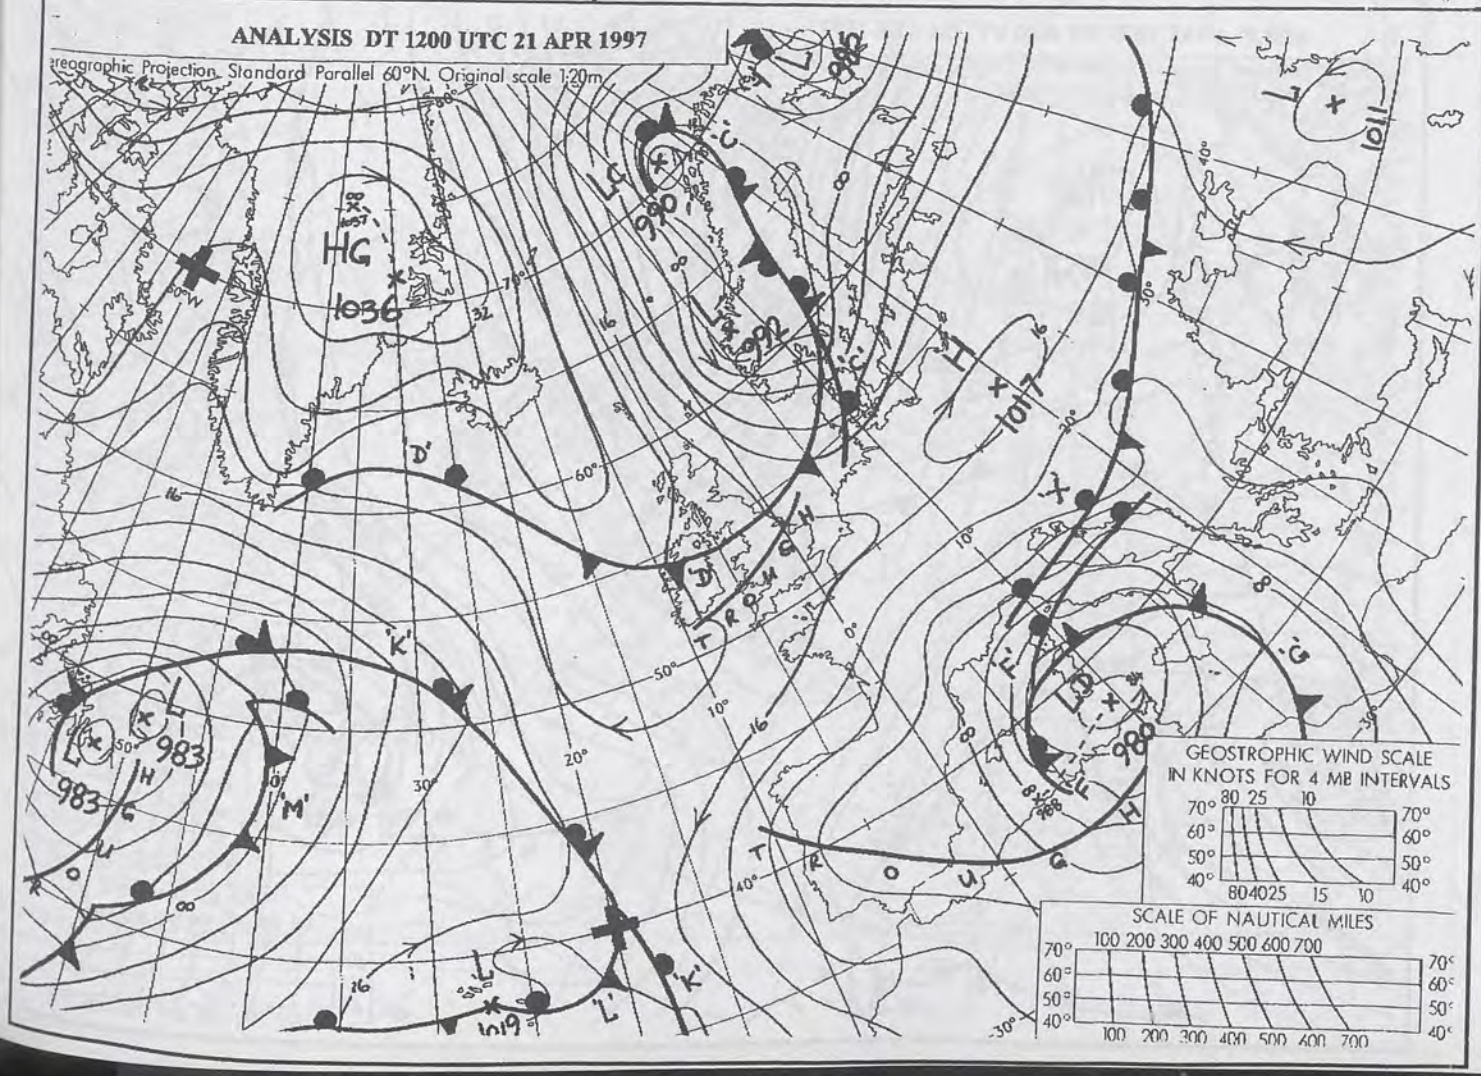 ANALYSIS DT 1200 UTC 21 APR 1997
ereographic Projection. Standard Parallel 60°N. Original scale 1:20m.
L
982
80°
L
1011
'C'
40°
LG
990
8
HG
1037
1036
32
70°
50°W
16
8
L
992
'C'
H
1017
16
30°
30°
'D'
60°
16
X
10°
H
G
U
O
R
T
'D'
0°
8
'K'
50°
'F'
'G'
L
983
L
983
50°
H
G
U
O
R
40°
'M'
30°
20°
10°
16
8
LD
980
988
'F'
30°
T
R
O
U
G
H
40°
8
16
L
1019
'L'
'K'
30°
GEOSTROPHIC WIND SCALE
IN KNOTS FOR 4 MB INTERVALS
80 25 10
70° 70°
60° 60°
50° 50°
40° 40°
80 40 25 15 10
SCALE OF NAUTICAL MILES
100 200 300 400 500 600 700
70° 70°
60° 60°
50° 50°
40° 40°
100 200 300 400 500 600 700